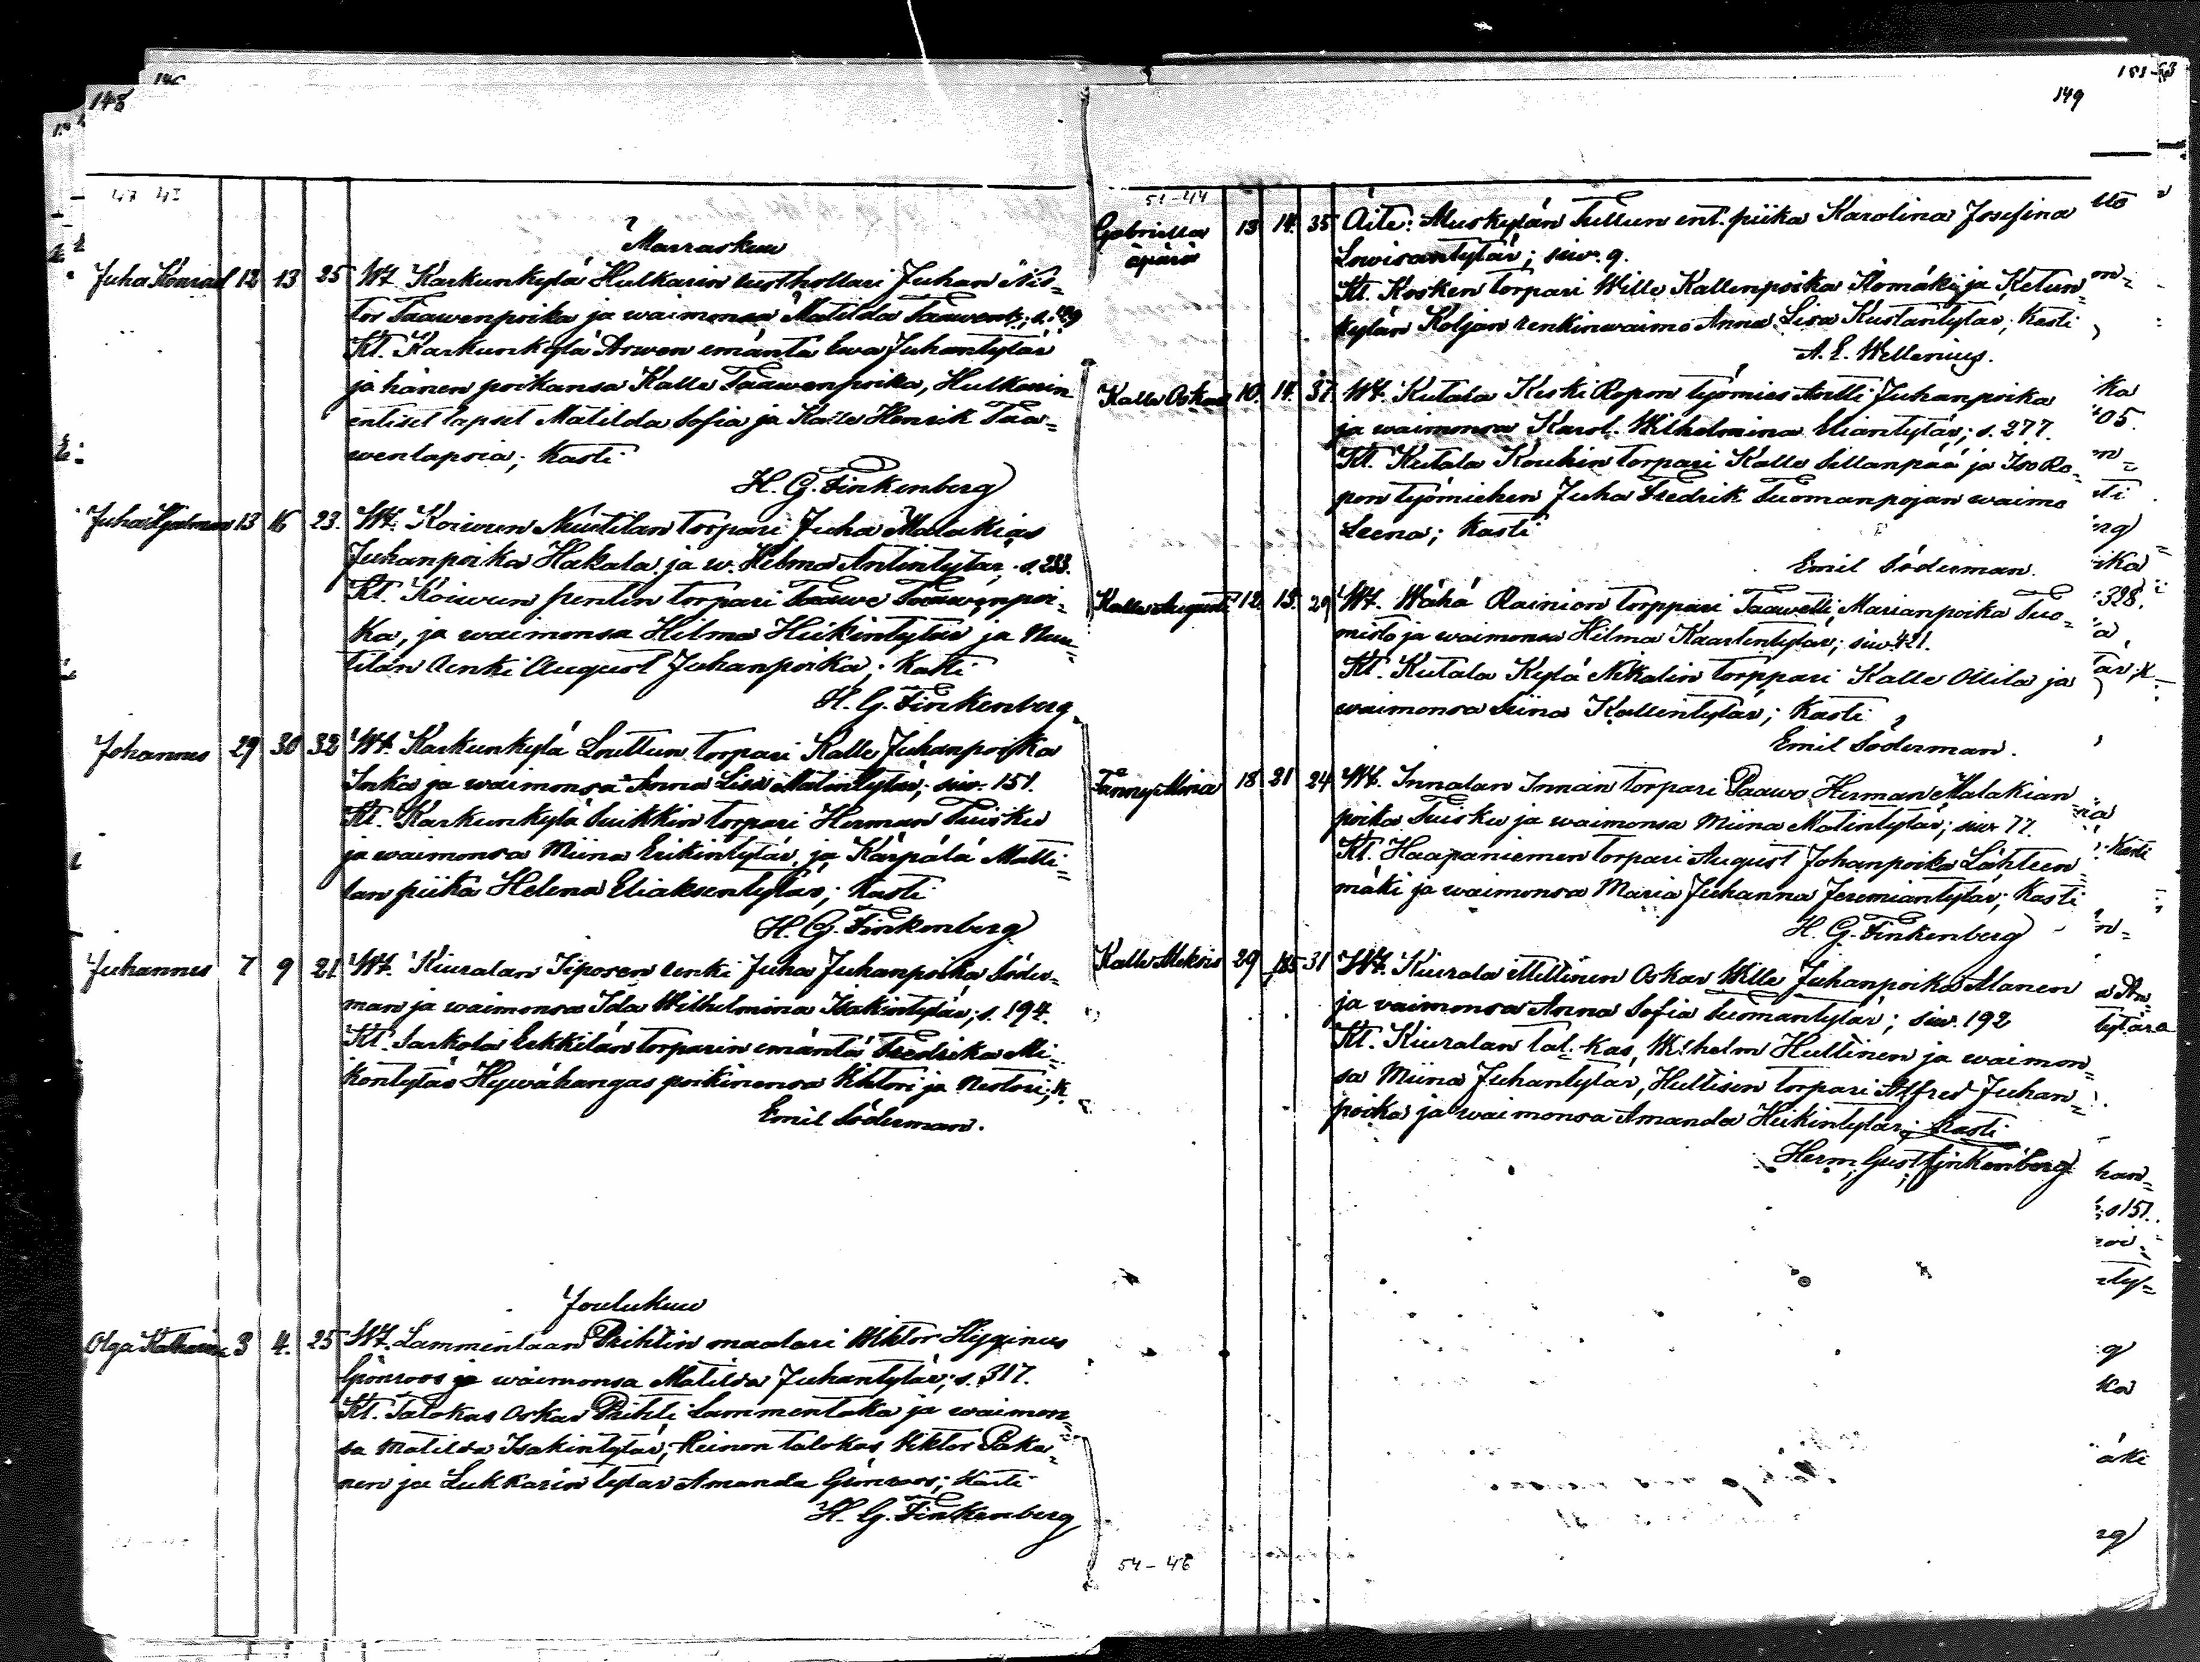 148
149
47 42
Marraskuu
Juha Konrad 12 13 25 Wt. Karkunkylä Hulkarin rusthollari Juhan Nis-
tor Taawenpoika ja waimonsa Matilda Taawent.; s. 129
Kt. Karkunkylä Arwen emäntä Ewa Juhantytär
ja hänen poikansa Kalle Taawenpoika, Hulkarin
entiset lapset Matilda Sofia ja Kalle Henrik Taa-
wenlapsia; kasti
H. G. Finkenberg
Juha Hjalmar 13 16 23. Wt. Koiwun Nuutilan torpari Juha Malakias
Juhanpoika Hakala ja w. Hilma Antintytär s. 233.
Kt. Koiwun Pentin torpari Taawe Taawinpoi-
ka, ja waimonsa Hilma Heikintytär ja Nuu-
tilan renki August Juhanpoika; kasti
H. G. Finkenberg
Johannes 29 30 32 Wt. Karkunkylä Knuttun torpari Kalle Juhanpoika
Inka ja waimonsa Anna Lisa Matintytär; siw. 151.
Kt. Karkunkylä Suikkin torpari Herman Tuisku
ja waimonsa Miina Erikintytär, ja Kärpälä Matti-
lan piika Helena Eliaksentytär; kasti
H. G. Finkenberg
Juhannes 7 9 21 Wt. Kiuralan Piposen renki Juha Juhanpoika Söder-
man ja waimonsa Ida Wilhelmina Isakintytär; s. 194.
Kt. Sarkola Erkkilän torparin emäntä Fredrika Mi-
kontytär Hywähangas poikinensa Wihtori ja Nestori; k.
Emil Söderman.
Joulukuu
Olga Katharina 3 4. 25 Wt. Lammentaan Prihtin maalari Wiktor Higginus
Grönroos ja waimonsa Matilda Juhantytär; s. 317.
Kt. Talokas Oskar Prihti Lammentaka ja waimon-
sa Matilda Isakintytär; Heinon talokas Viktor Paka-
nen ja Lukkarin tytär Amanda Grönroos; kasti
H. G. Finkenberg
51-44
Gabriella 13 14. 35 Äiti: Muskylän Tullun ent. piika Karolina Josefina
äpärä Lowisantytär; siw. 9.
Kt. Kosken torpari Wille Kallenpoika Komäki ja Ketun-
kylän Koljan renkinwaimo Anna Lisa Kustantytär; kasti
A. E. Wellenius.
Kalle Oskar 10. 14. 37. Wt. Kutala Keski Ropon työmies Antti Juhanpoika
ja waimonsa Karol. Wilhelmina Eliantytär; s. 277.
Kt. Kutala Koukin torpari Kalle Sillanpää ja Iso Ro-
pon työmiehen Juha Fredrik Tuomanpojan waimo
Leena; kasti
Emil Söderman.
Kalle August 12. 15. 29 Wt. Wähä Rainion torppari Taawetti Marianpoika Tuo-
misto ja waimonsa Hilma Kaarlentytär; siw. 421.
Kt. Kutala Kylä Nikalin torppari Kalle Ollila ja
waimonsa Siina Kallentytär; kasti
Emil Söderman.
Fanny Mina 18 21 24 Wt. Innalan Innan torpari Paawo Herman Malakian
poika Tuisku ja waimonsa Miina Matintytär; siw 77.
Kt. Haapaniemen torpari August Johanpoika Lähteen-
mäki ja waimonsa Maria Juhanna Jeremiantytär; kasti
H. G. Finkenberg
Kalle Aleksis 29 31 Wt. Kiurala Oskar Wille Juhanpoika Alanen
ja vaimonsa Anna Sofia Tuomantytär; siw. 192
Kt. Kiuralan tal. kas, Wilhelm Huttinen ja waimon-
sa Miina Juhantytär, Huttisen torpari Alfred Juhan-
poika ja waimonsa Amanda Heikintytär; kasti
Herm. Gust Finkenberg
54-46